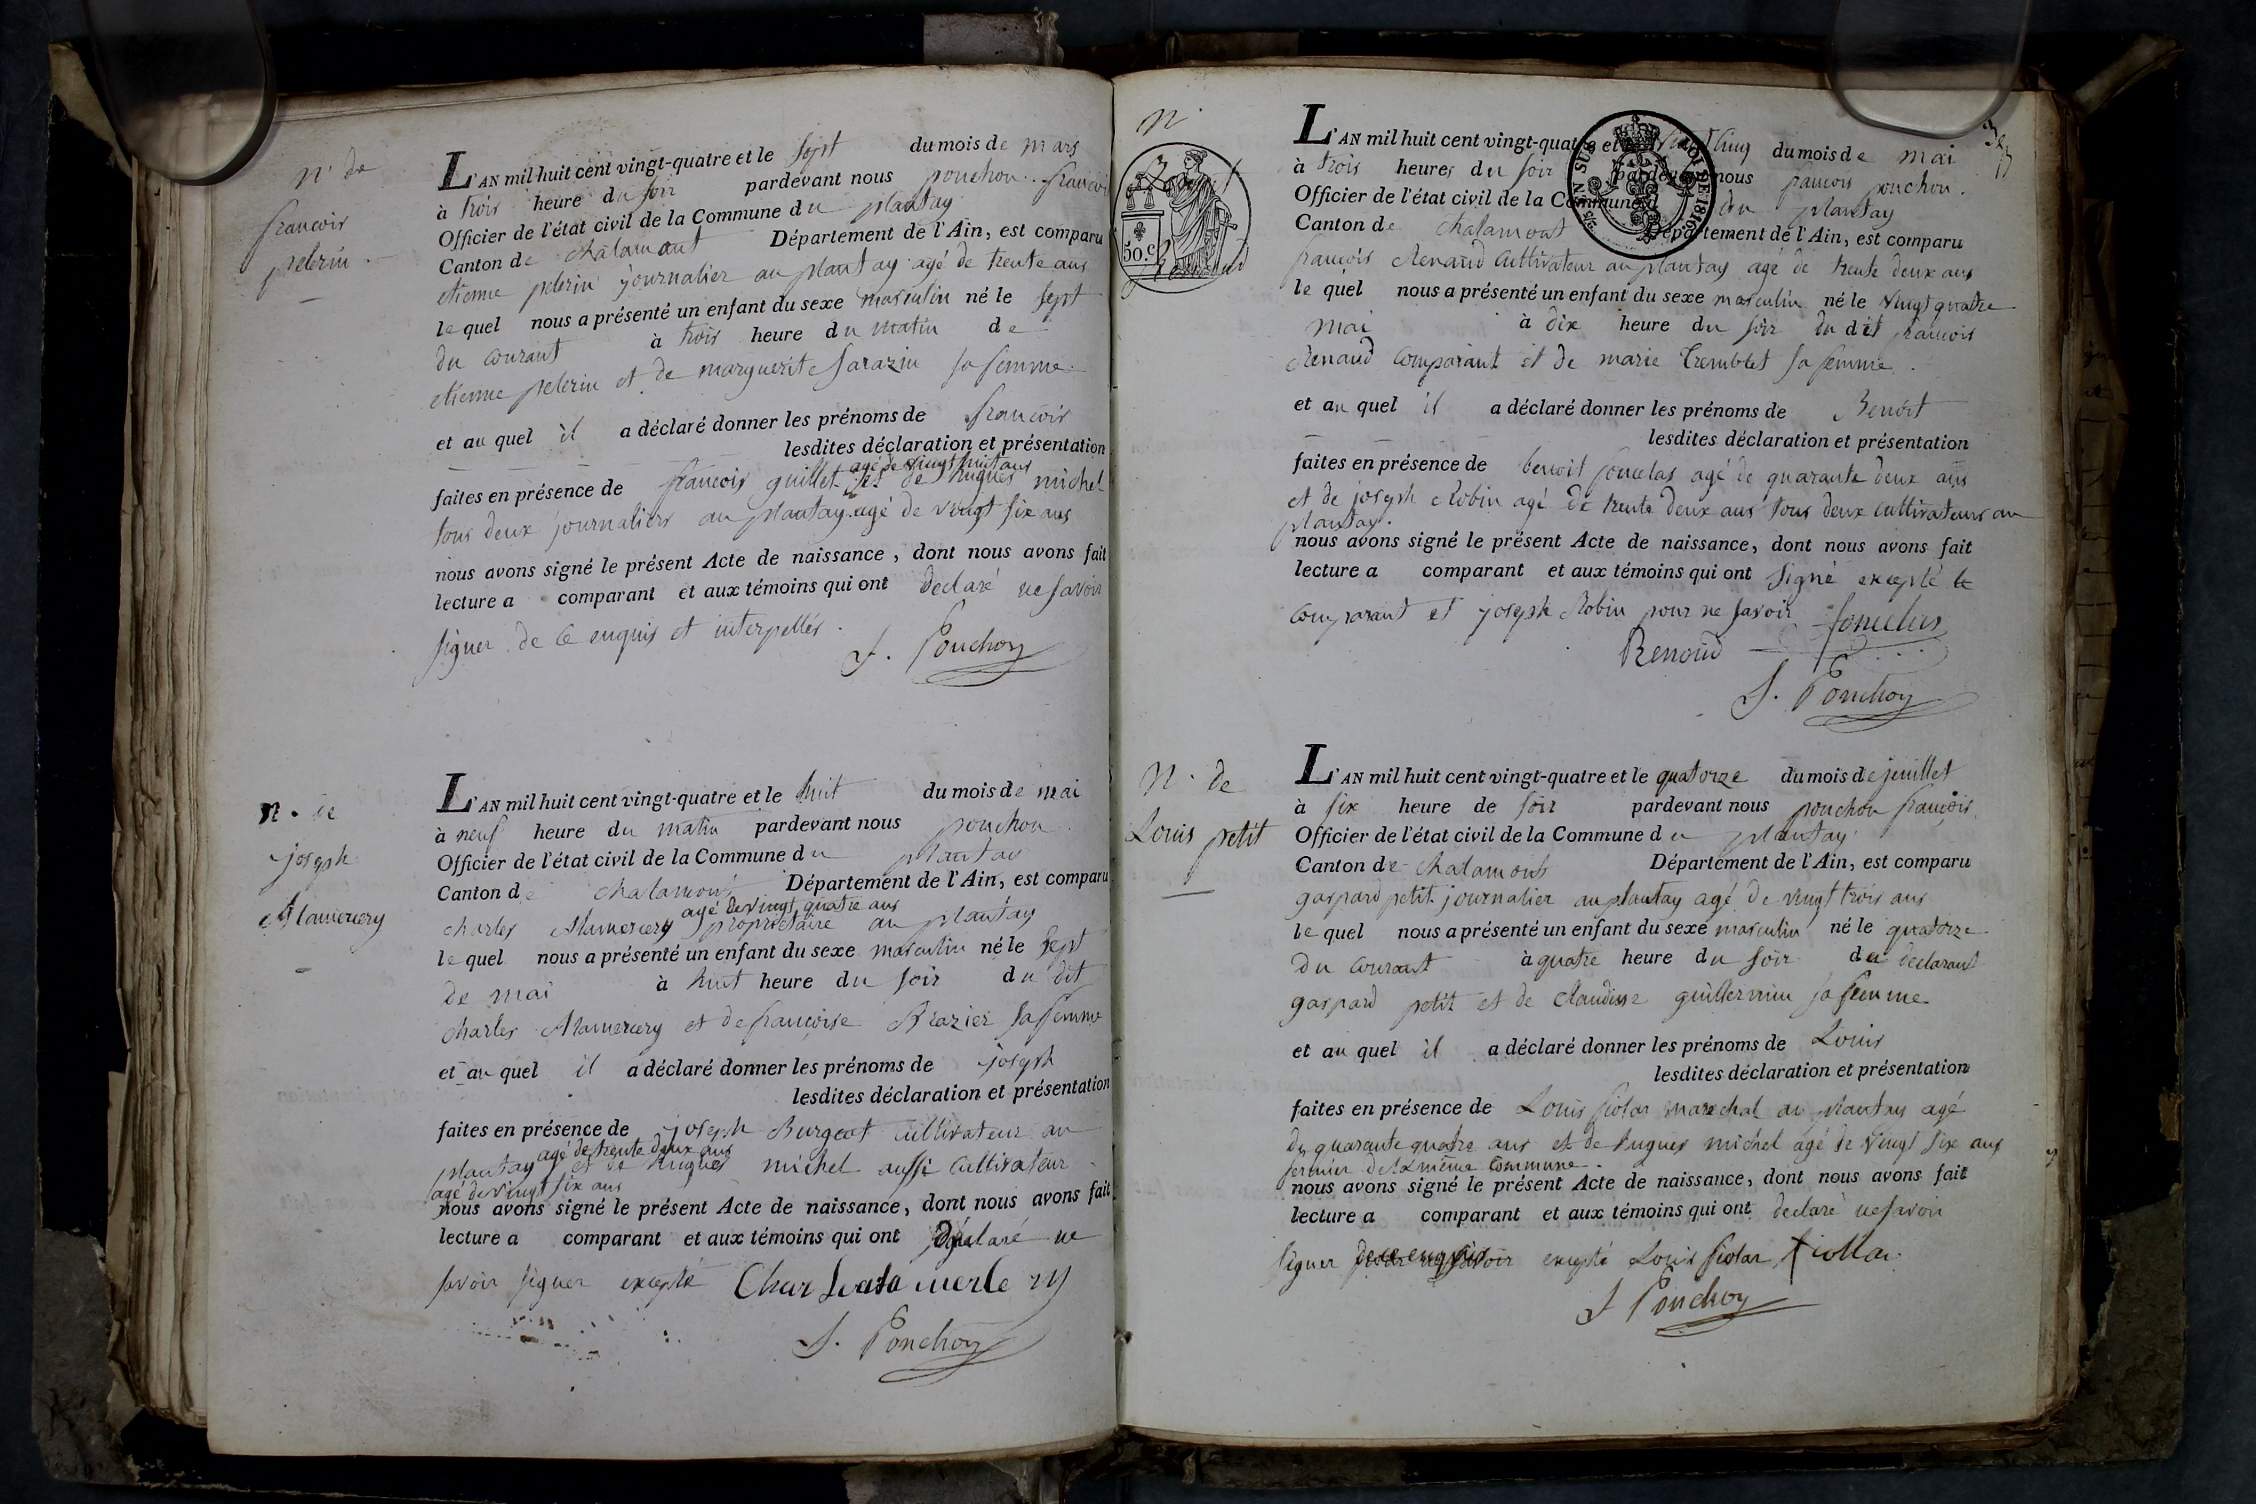 N. de
francois
pelerin.
L'AN mil huit cent vingt-quatre et le sept du mois de mars
à trois heure du soir pardevant nous ponchon francois
Officier de l'état civil de la Commune du plantay
Canton de chalamont Département de l'Ain, est comparu
etienne pelerin journalier au plantay agé de trente ans
le quel nous a présenté un enfant du sexe masculin né le sept
du courant à trois heure du matin de
etienne pelerin et de marguerite sarazin sa femme.
et au quel il a déclaré donner les prénoms de francois
lesdites déclaration et présentation
agé de vingt huit ans
faites en présence de francois guillet et de hugues michel
tous deux journaliers au plantay agé de vingt six ans
nous avons signé le présent Acte de naissance, dont nous avons fait
lecture a comparant et aux témoins qui ont declaré ne savoir
signer de ce enquis et interpellés.
f. Ponchon
N. de
joseph
Alamercery
L'AN mil huit cent vingt-quatre et le huit du mois de mai
à neuf heure du matin pardevant nous ponchon
Officier de l'état civil de la Commune du plantay
Canton de chalamont Département de l'Ain, est comparu
agé de vingt quatre ans
charles Alamercery proprietaire au plantay
le quel nous a présenté un enfant du sexe masculin né le sept
de mai à huit heure du soir du dit
charles Alamercery et de françoise Brazier sa femme
et au quel il a déclaré donner les prénoms de joseph
lesdites déclaration et présentation
faites en présence de joseph Burgeat cultivateur au
agé de trente deux ans
plantay et de hugues michel aussi cultivateur
agé de vingt six ans
nous avons signé le présent Acte de naissance, dont nous avons fait
lecture a comparant et aux témoins qui ont déclaré ne
savoir signer excepté
f. Ponchon
N.
50.c.
Renaud
L'AN mil huit cent vingt-quatre et le vingt cinq du mois de mai
EN SUS LOI DE 1816.
à trois heures du soir pardevant nous francois ponchon.
Officier de l'état civil de la Commune du plantay
Canton de chalamont Département de l'Ain, est comparu
francois Renaud cultivateur au plantay agé de trente deux ans
le quel nous a présenté un enfant du sexe masculin né le vingt quatre
mai à dix heure du soir du dit francois
Renaud comparant et de marie Tremblet sa femme.
et au quel il a déclaré donner les prénoms de Benoit
lesdites déclaration et présentation
faites en présence de benoit agé de quarante deux ans
et de joseph Robin agé de trente deux ans tous deux cultivateurs au
plantay.
nous avons signé le présent Acte de naissance, dont nous avons fait
lecture a comparant et aux témoins qui ont signé excepté le
comparant et joseph Robin pour ne savoir
Renoud
f. Ponchon
N. de
Louis petit
L'AN mil huit cent vingt-quatre et le quatorze du mois de jeuillet
à six heure de soir pardevant nous ponchon françois
Officier de l'état civil de la Commune du plantay
Canton de chalamont Département de l'Ain, est comparu
gaspard petit journalier au plantay agé de vingt trois ans
le quel nous a présenté un enfant du sexe masculin né le quatorze
du courant à quatre heure du soir du declarant
gaspard petit et de claudine guillermin sa femme
et au quel il a déclaré donner les prénoms de Louis
lesdites déclaration et présentation
faites en présence de Louis fiolar marechal au plantay agé
de quarante quatre ans et de hugues michel agé de vingt six ans
fermier de la même commune.
nous avons signé le présent Acte de naissance, dont nous avons fait
lecture a comparant et aux témoins qui ont declaré ne savoir
signer excepté Louis fiolar fiolla
f Ponchon